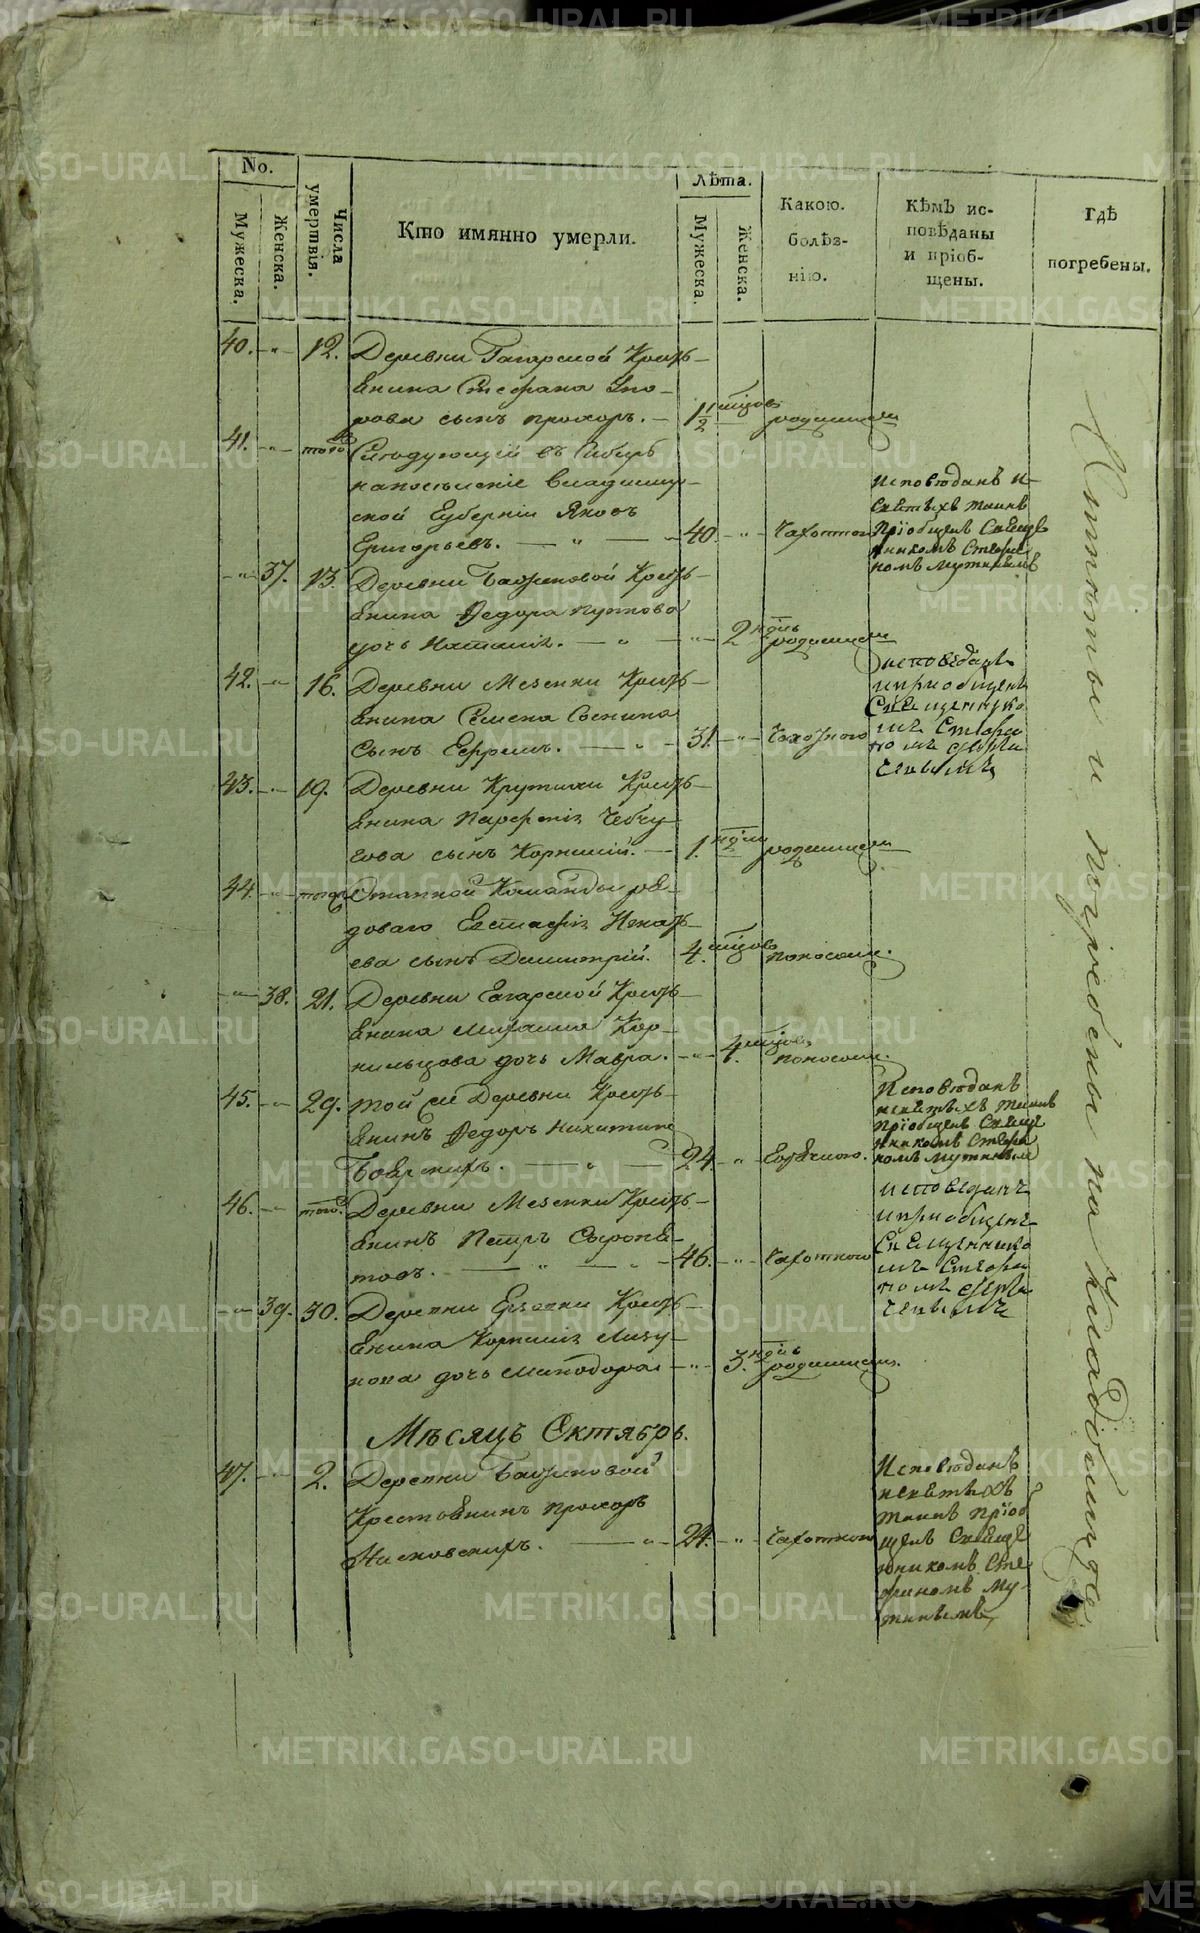 No.
Мужеска.
Женска.
Числа умертвія.
Кто имянно умерли.
Лѣта.
Мужеска.
Женска.
Какою. болѣз-нію.
Кѣмъ ис-повѣданы и пріоб-щены.
Гдѣ погребены.
40. 12. Деревни Гагарской Кресть-
янина Стефана
рова сынъ Прохоръ. 1 1/2 родимцемъ
41. того Слѣдующій въ Сибирь
на поселеніе Владимир-
ской Губерніи Яковъ
Григорьевъ. 40. Чахоткою
Исповѣданъ и
святыхъ таинъ
пріобщенъ Священ
никомъ Стефа
номъ
37. 13. Деревни Баженовой Кресть-
янина Ѳедора
дочь Наталія. 2 нѣдѣль родимцемъ
42. 16. Деревни Мезенки Кресть-
янина Семена
сынъ Ефремъ. 31. Чахоткою
исповеданъ
и приобщенъ
Священнико
мъ Стефа
номъ
43. 19. Деревни Крутихи Кресть-
янина Парфенія Чебчу-
гова сынъ Корнилій. 1. нѣдѣли родимцемъ
44. того Этапной Команды ря-
доваго Евстафія Игнать-
ева сынъ Димитрій. 4. мѣсяцовъ поносомъ.
38. 21. Деревни Гагарской Кресть-
янина Михаила Кор-
нильцова дочь Мавра. 4. мѣсяцовъ поносомъ.
45. 29. Той же Деревни Кресть-
янинъ Ѳедоръ Никитинъ
Боярскихъ. 24. Горячкою.
Исповѣданъ
и святыхъ таинъ
пріобщенъ Свяще
нникомъ Стефа
номъ
46. того. Деревни Мезенки Кресть-
янинъ Петръ Сыропя-
товъ. 46. Чахоткою
исповеданъ
и приобщенъ
Священнико
мъ Стефа
номъ
39. 30. Деревни Кресть-
янина Корнилія Мизу-
нова дочь Минодора. 3. нѣдѣль родимцемъ.
Мѣсяцъ Октябрь.
47. 2. Деревни Баженовой
Крестьянинъ Прохоръ
24. Чахоткою
Исповѣданъ
и святыхъ
таинъ пріоб
щенъ Свяще
нникомъ Сте
фаномъ Му-
Отпѣты и погребены на кладбище
METRIKI.GASO-URAL.RU